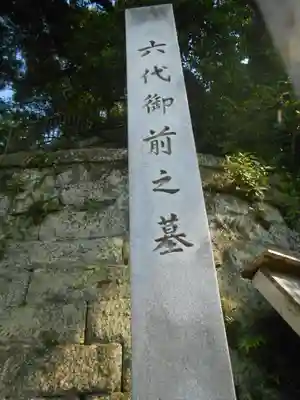 六代御前之墓